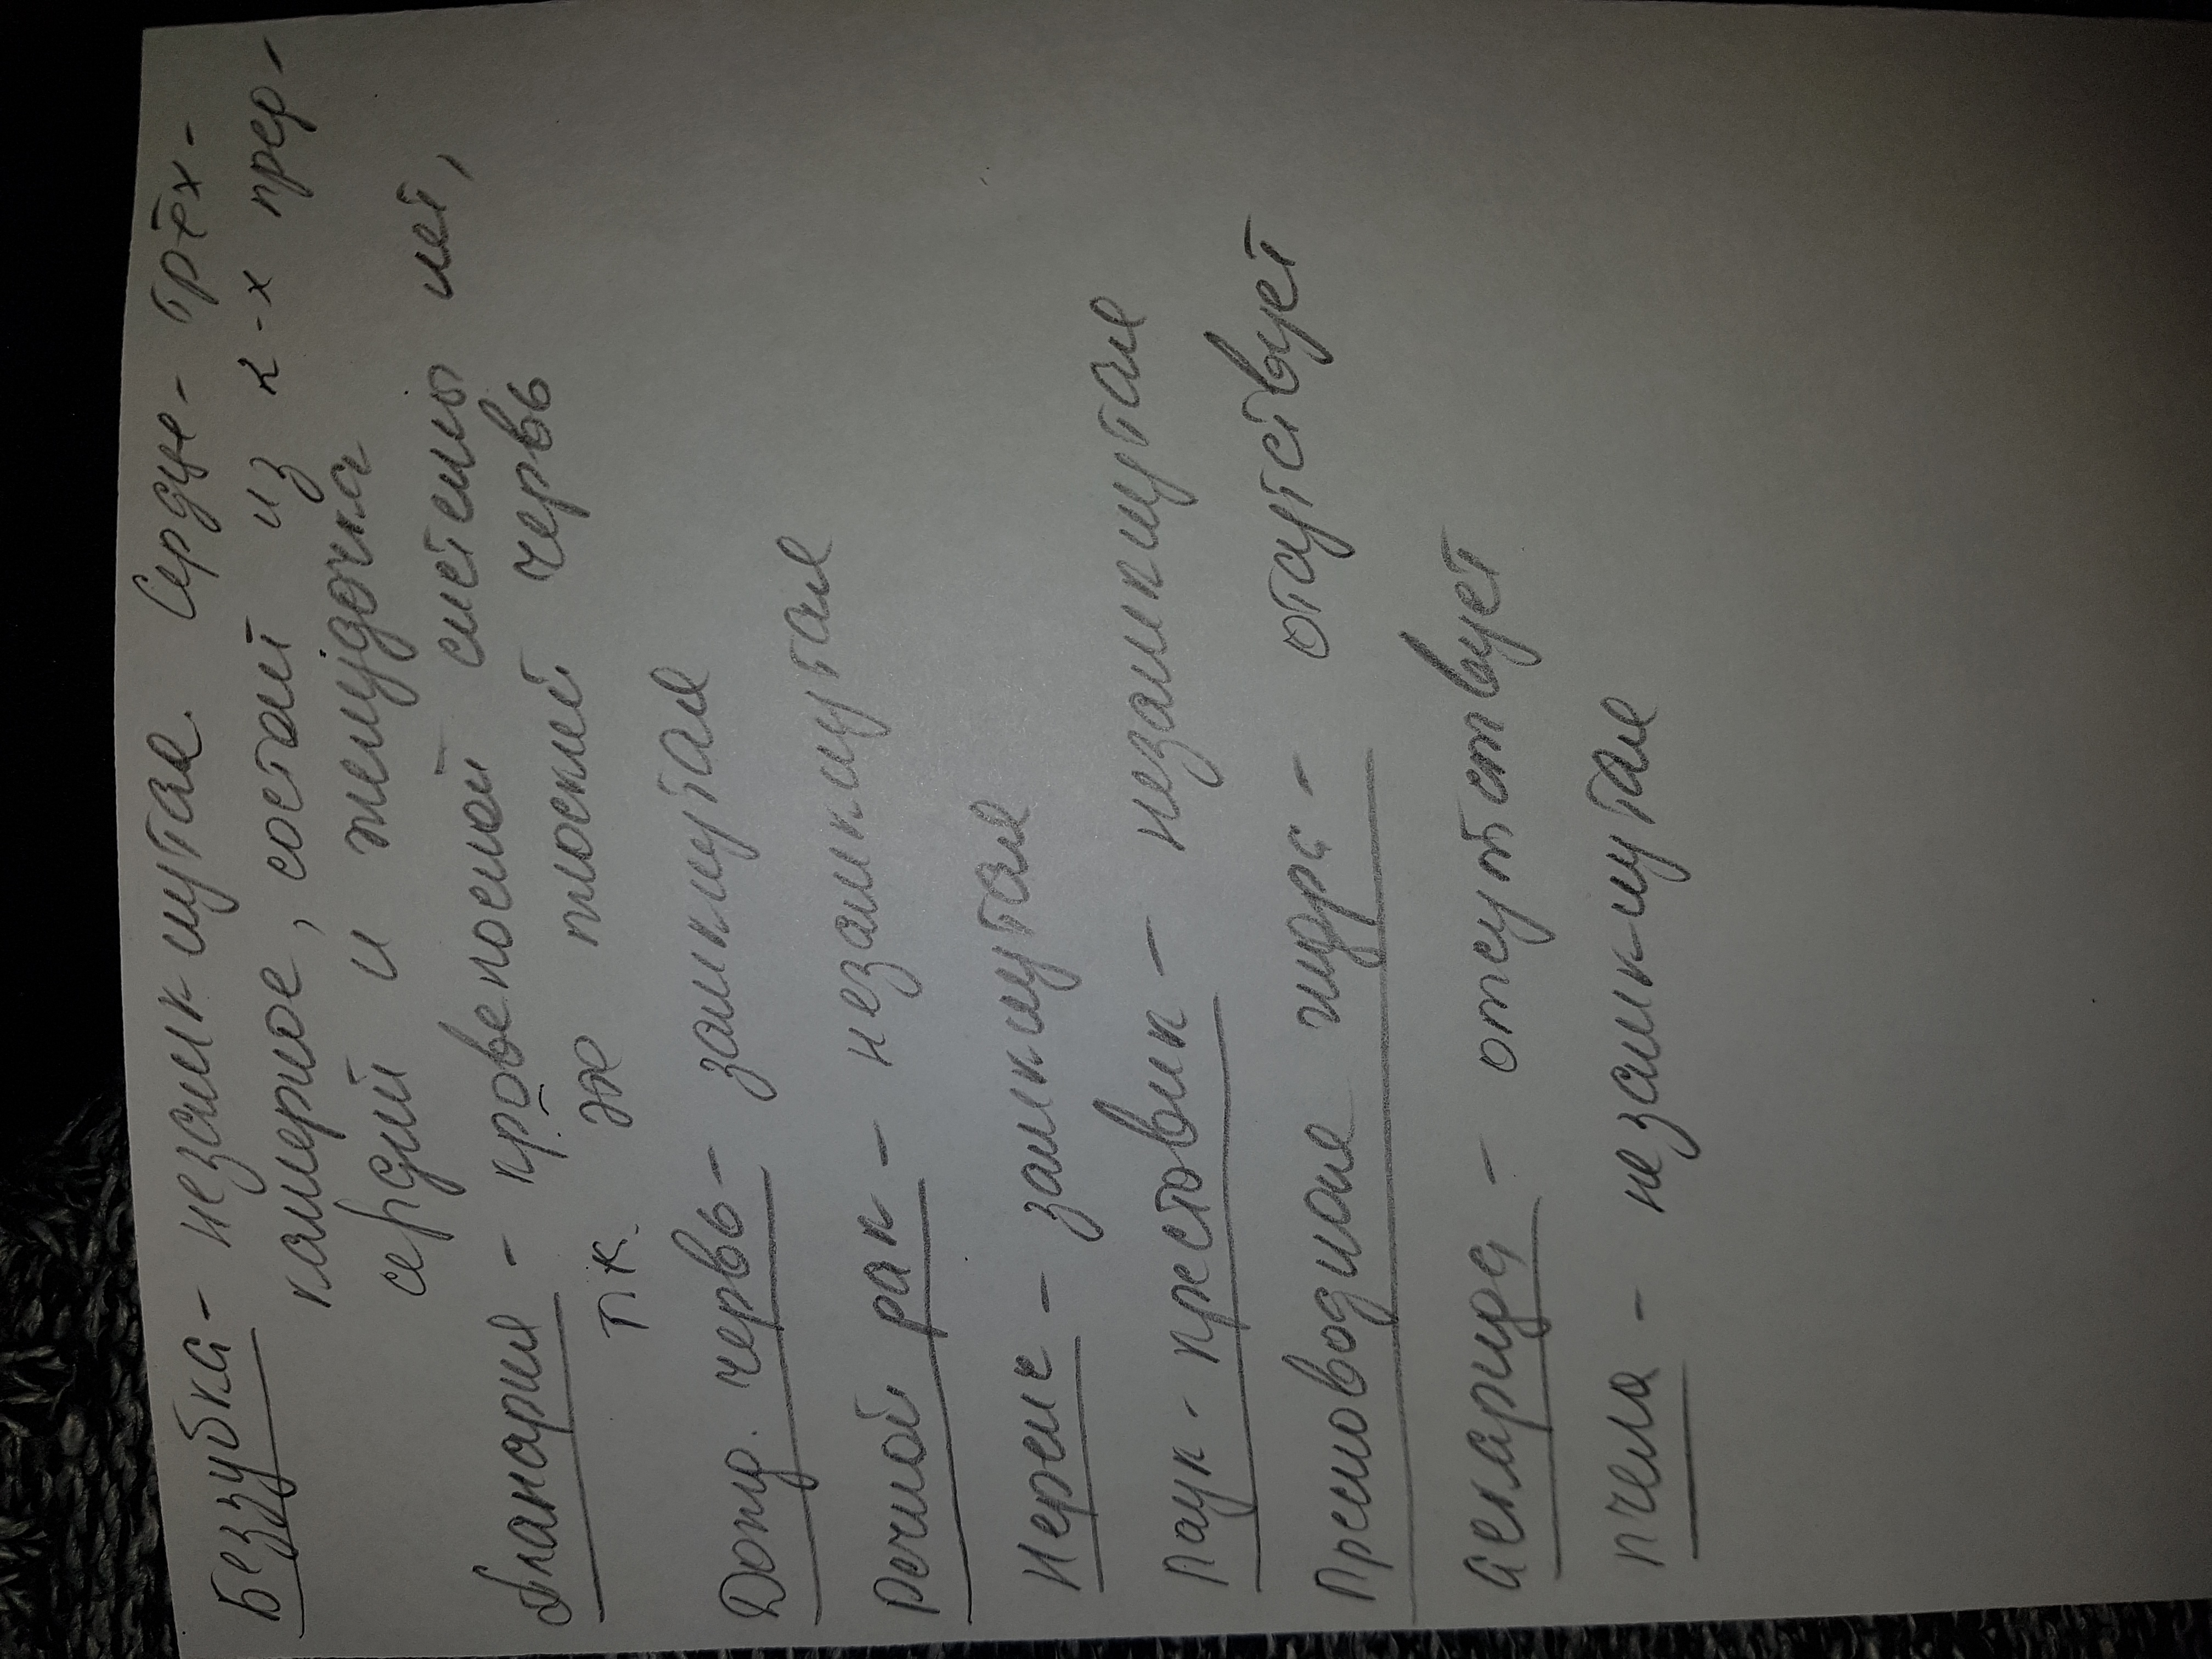 Беззубка - незамкнутая. Сердце - трёх-
камерное, состоит из 2-х пред-
сердий и желудочка
Планария - кровеносной системы нет,
т.к. это плоский червь
Дожд. червь - замкнутая
Речной рак - незамкнутая
Нереис - замкнутая
Паук-крестовик - незамкнутая
Пресноводная гидра - отсутствует
аскарида - отсутствует
пчела - незамкнутая